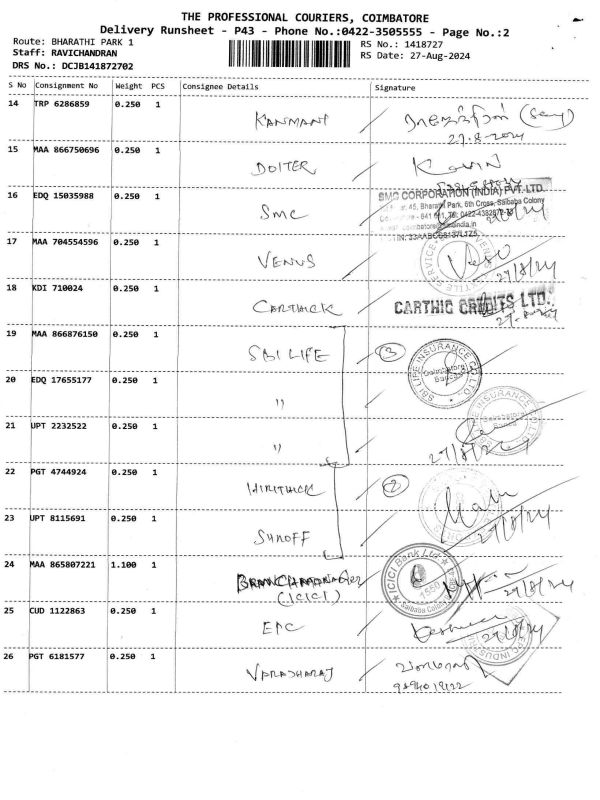 THE PROFESSIONAL COURIERS, COIMBATORE
Delivery Runsheet - P43 - Phone No.:0422-3505555 - Page No.:2
Route: BHARATHI PARK 1
RS No.: 1418727
Staff: RAVICHANDRAN
RS Date: 27-Aug-2024
DRS No.: DCJB141872702
S No Consignment No Weight PCS Consignee Details Signature
14 TRP 6286859 0.250 1 KANMANI
27.8.2024
15 MAA 866750696 0.250 1 DOITER
16 EDQ 15035988 0.250 1 SMC
SMC CORPORATION (INDIA) PVT. LTD.
45, Bharathi Park, 6th Cross, Saibaba Colony
17 MAA 704554596 0.250 1 VENUS 27/8/24
18 KDI 710024 0.250 1 CARTHICK CARTHIC CREDITS LTD.
19 MAA 866876150 0.250 1 SBI LIFE 3
SBI LIFE INSURANCE CO. LTD.
20 EDQ 17655177 0.250 1 "
21 UPT 2232522 0.250 1 " 27/8/24
22 PGT 4744924 0.250 1 HIRITHICK 2
23 UPT 8115691 0.250 1 SUNOFF 27/8/24
24 MAA 865807221 1.100 1
(ICICI)
ICICI Bank Ltd
1550
Saibaba Colony
27/8/24
25 CUD 1122863 0.250 1 EPC 27/8/24
26 PGT 6181577 0.250 1 VARADHARAJ